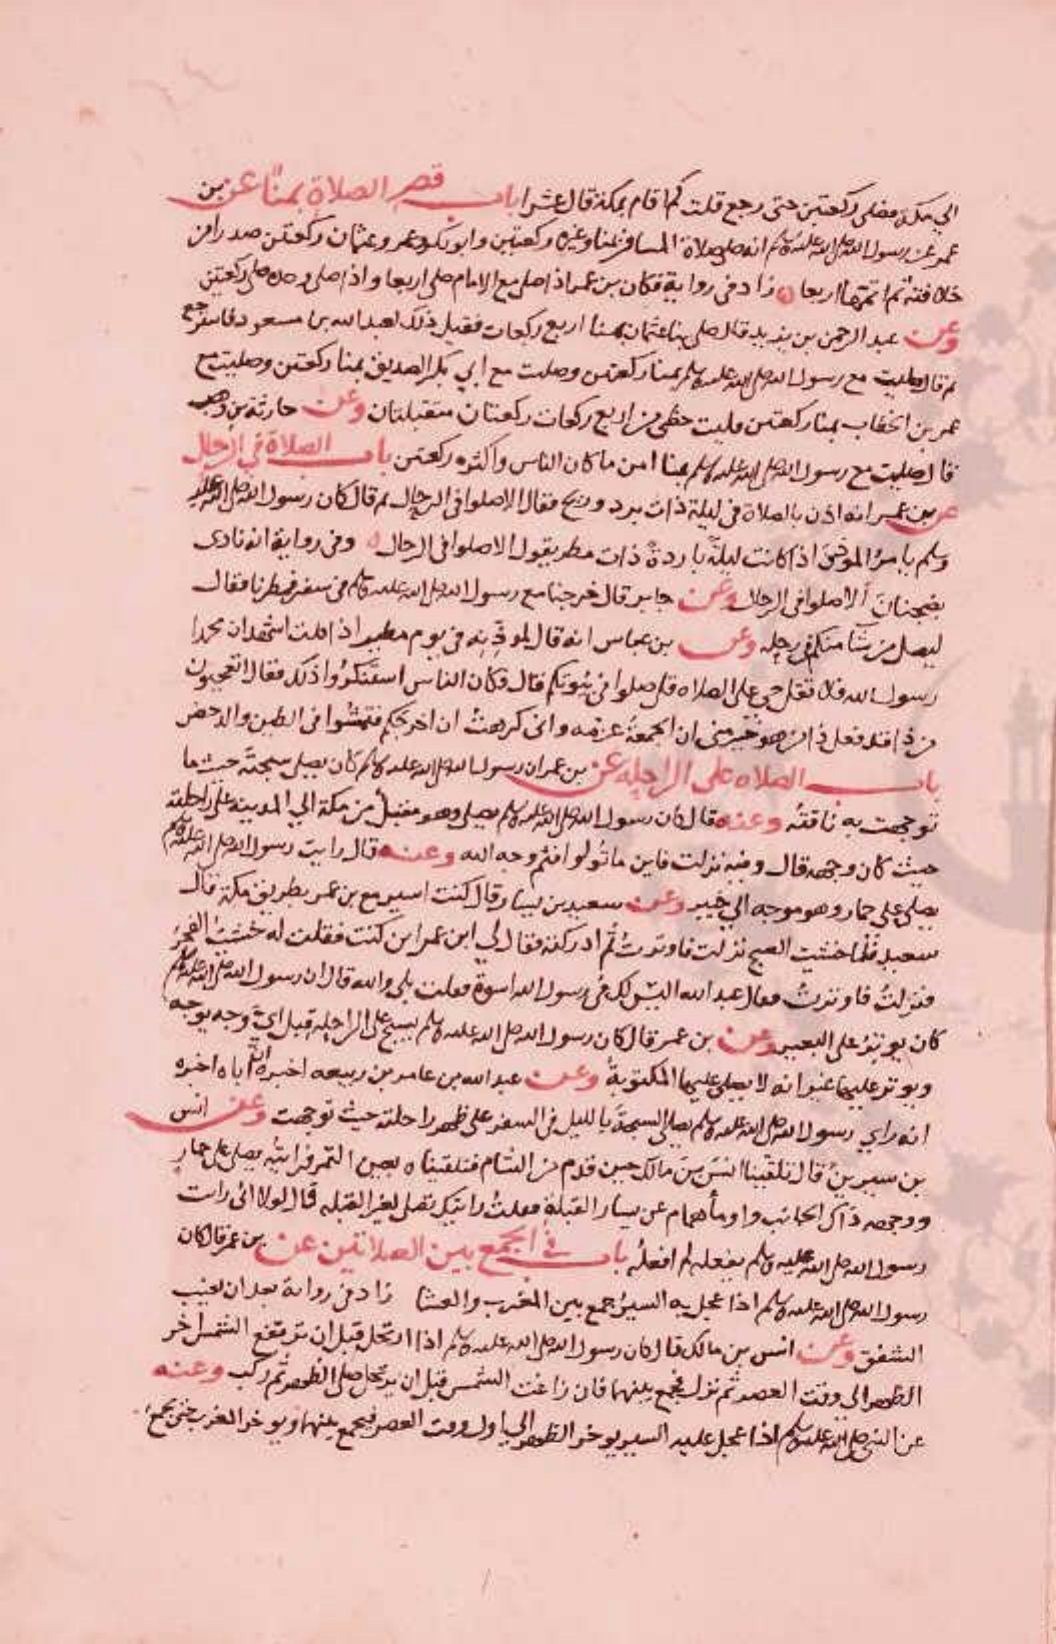 الي مكة فصلى ركعتين حتى رجع قلت كم اقام بمكة قال عشرا باب قصر الصلاة بمنا عن بن
عمر عن رسول الله صلى الله عليه وسلم انه صلى صلاة المسافر بمنا وغيره ركعتين وابو بكر وعمر وعثمان ركعتين صدرا من
خلافته ثم اتمها اربعا زاد في رواية فكان بن عمر اذا صلى مع الامام صلى اربعا واذا صلى وحده صلى ركعتين
وعن عبد الرحمن بن يزيد قال صلى بنا عثمان بمنا اربع ركعات فقيل ذلك لعبد الله بن مسعود فاسترجع
ثم قال صليت مع رسول الله صلى الله عليه وسلم بمنا ركعتين وصليت مع ابي بكر الصديق بمنا ركعتين وصليت مع
عمر بن الخطاب بمنا ركعتين فليت حظي من اربع ركعات ركعتان متقبلتان وعن حارثة بن وهب
قال صليت مع رسول الله صلى الله عليه وسلم بمنا امن ما كان الناس واكثره ركعتين باب الصلاة في الرحال
عن بن عمر انه اذن بالصلاة في ليلة ذات برد وريح فقال الا صلوا في الرحال ثم قال كان رسول الله صلى الله عليه
وسلم يامر الموذن اذا كانت ليلة باردة ذات مطر يقول الا صلوا في الرحال وفي رواية انه نادى
بضجنان ألا صلوا في الرحال وعن جابر قال خرجنا مع رسول الله صلى الله عليه وسلم في سفر فمطرنا فقال
ليصل من شآ منكم في رحله وعن بن عباس انه قال لموذنه في يوم مطير اذا قلت اشهد ان محمدا
رسول الله فلا تقل حي على الصلاه قل صلوا في بيوتكم قال فكان الناس استنكروا ذلك فقال اتعجبون
من ذا قد فعل ذا من هو خير مني ان الجمعة عزمه واني كرهت ان اخرجكم فتمشوا في الطين والدحض
باب الصلاه على الراحله عن بن عمر ان رسول الله صلى الله عليه وسلم كان يصلي سبحته حيث ما
توجهت به ناقته وعنه قال كان رسول الله صلى الله عليه وسلم يصلي وهو مقبل من مكة الي المدينه على راحلته
حيث كان وجهه قال وفيه نزلت فاين ما تولوا فثم وجه الله وعنه قال رايت رسول الله صلى الله عليه وسلم
يصلي على حمار وهو موجه الي خيبر وعن سعيد بن يسار قال كنت اسير مع بن عمر بطريق مكة قال
سعيد فلما خشيت الصبح نزلت فاوترت ثم ادركته فقال لي ابن عمر اين كنت فقلت له خشيت الفجر
فنزلت فاوترت فقال عبد الله اليس لك في رسول الله اسوة فقلت بلى والله قال ان رسول الله صلى الله عليه وسلم
كان يوتر على البعير وعن بن عمر قال كان رسول الله صلى الله عليه وسلم يسبح على الراحله قبل اي وجه يوجه
ويوتر عليها غير انه لا يصلي عليها المكتوبة وعن عبد الله بن عامر بن ربيعه اخبره ان اباه اخبره
انه راي رسول الله صلى الله عليه وسلم يصلي السبحة بالليل في السفر على ظهر راحلته حيث توجهت وعن انس
بن سيرين قال تلقينا انس بن مالك حين قدم من الشام فتلقيناه بعين التمر فرايته يصلي على حمار
ووجهه ذاك الجانب واومأ همام عن يسار القبلة فقلت رايتك تصلي لغير القبله قال لولا اني رايت
رسول الله صلى الله عليه وسلم يفعله لم افعله باب في الجمع بين الصلاتين عن بن عمر قال كان
رسول الله صلى الله عليه وسلم اذا عجل به السير جمع بين المغرب والعشا زاد في رواية بعد ان يغيب
الشفق وعن انس بن مالك قال كان رسول الله صلى الله عليه وسلم اذا ارتحل قبل ان ترتفع الشمس اخر
الظهر الي وقت العصر ثم نزل فجمع بينهما فان زاغت الشمس قبل ان يرتحل صلى الظهر ثم ركب وعنه
عن النبي صلى الله عليه وسلم اذا عجل عليه السير يوخر الظهر الي اول وقت العصر فيجمع بينهما ويوخر المغرب حتى يجمع